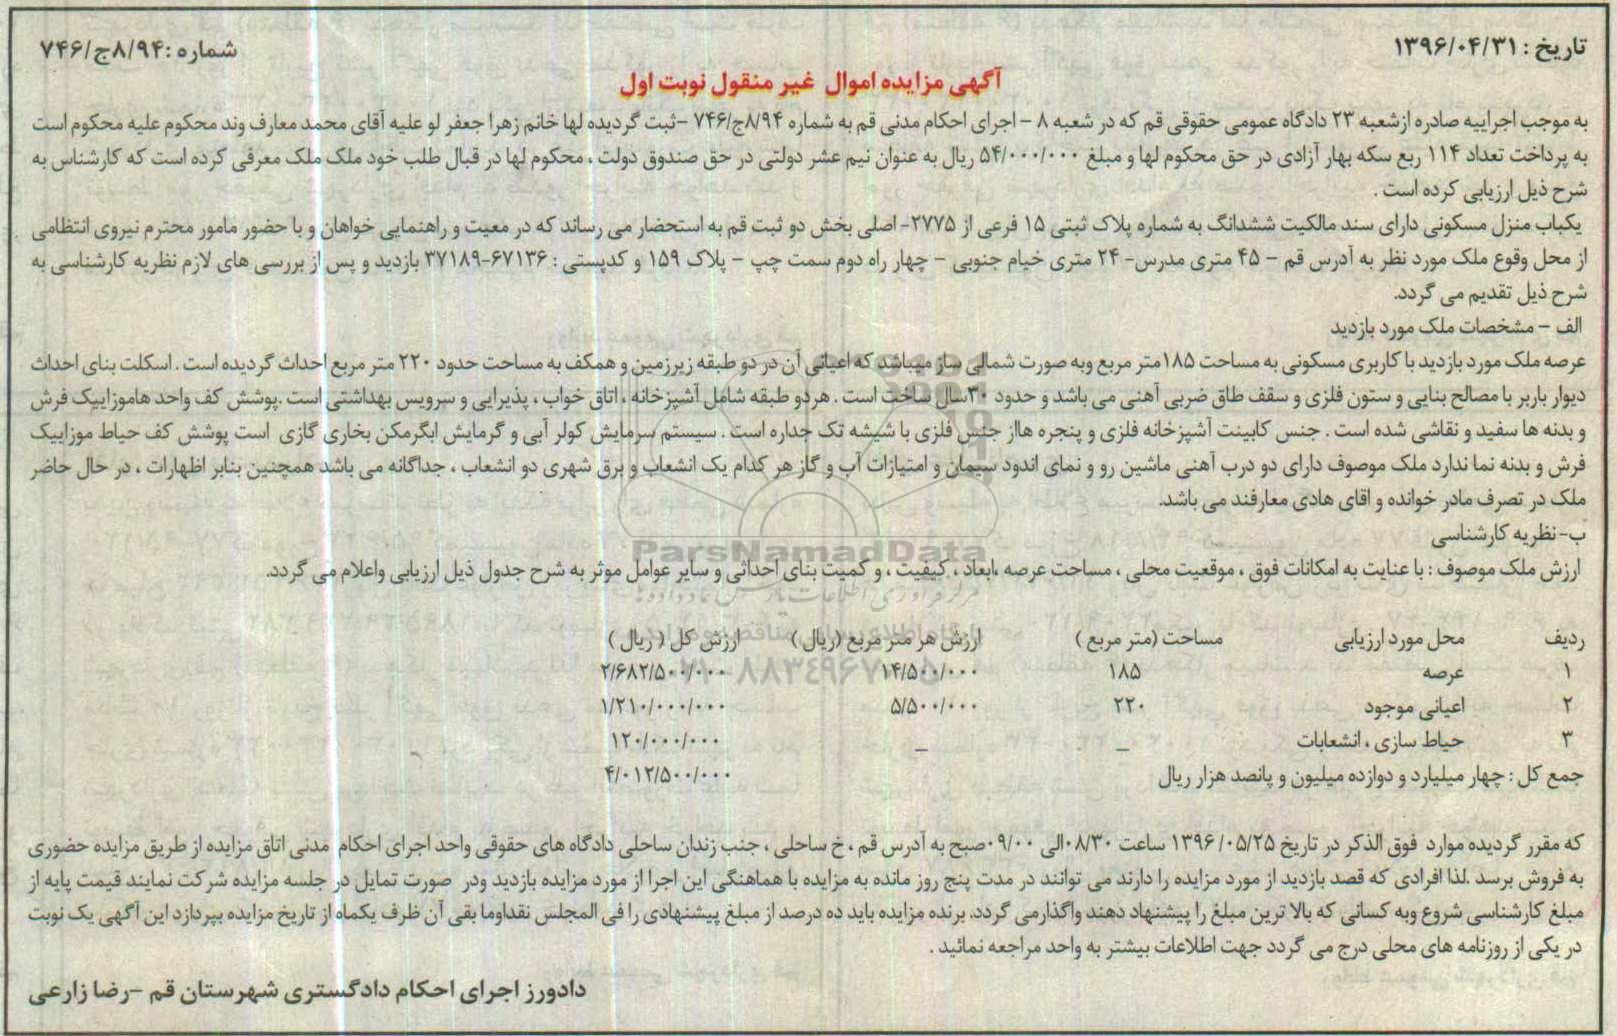 تاریخ : ۱۳۹۶/۰۴/۳۱
شماره :۸/۹۴ج/۷۴۶
آگهی مزایده اموال غیر منقول نوبت اول
به موجب اجراییه صادره ازشعبه ۲۳ دادگاه عمومی حقوقی قم که در شعبه ۸ – اجرای احکام مدنی قم به شماره ۸/۹۴ج/۷۴۶ –ثبت گردیده لها خانم زهرا جعفر لو علیه آقای محمد معارف وند محکوم علیه محکوم است
به پرداخت تعداد ۱۱۴ ربع سکه بهار آزادی در حق محکوم لها و مبلغ ۵۴/۰۰۰/۰۰۰ ریال به عنوان نیم عشر دولتی در حق صندوق دولت ، محکوم لها در قبال طلب خود ملک ملک معرفی کرده است که کارشناس به
شرح ذیل ارزیابی کرده است .
یکباب منزل مسکونی دارای سند مالکیت ششدانگ به شماره پلاک ثبتی ۱۵ فرعی از ۲۷۷۵- اصلی بخش دو ثبت قم به استحضار می رساند که در معیت و راهنمایی خواهان و با حضور مامور محترم نیروی انتظامی
از محل وقوع ملک مورد نظر به آدرس قم – ۴۵ متری مدرس- ۲۴ متری خیام جنوبی – چهار راه دوم سمت چپ – پلاک ۱۵۹ و کدپستی : ۶۷۱۳۶-۳۷۱۸۹ بازدید و پس از بررسی های لازم نظریه کارشناسی به
شرح ذیل تقدیم می گردد.
الف – مشخصات ملک مورد بازدید
عرصه ملک مورد بازدید با کاربری مسکونی به مساحت ۱۸۵متر مربع وبه صورت شمالی ساز میباشد که اعیانی آن در دو طبقه زیرزمین و همکف به مساحت حدود ۲۲۰ متر مربع احداث گردیده است . اسکلت بنای احداث
دیوار باربر با مصالح بنایی و ستون فلزی و سقف طاق ضربی آهنی می باشد و حدود ۳۰سال ساخت است . هردو طبقه شامل آشپزخانه ، اتاق خواب ، پذیرایی و سرویس بهداشتی است .پوشش کف واحد هاموزاییک فرش
و بدنه ها سفید و نقاشی شده است . جنس کابینت آشپزخانه فلزی و پنجره هااز جنس فلزی با شیشه تک جداره است . سیستم سرمایش کولر آبی و گرمایش ابگرمکن بخاری گازی است پوشش کف حیاط موزاییک
فرش و بدنه نما ندارد ملک موصوف دارای دو درب آهنی ماشین رو و نمای اندود سیمان و امتیازات آب و گاز هر کدام یک انشعاب و برق شهری دو انشعاب ، جداگانه می باشد همچنین بنابر اظهارات ، در حال حاضر
ملک در تصرف مادر خوانده و اقای هادی معارفند می باشد.
ب-نظریه کارشناسی
ارزش ملک موصوف : با عنایت به امکانات فوق ، موقعیت محلی ، مساحت عرصه ،ابعاد ، کیفیت ، و کمیت بنای احداثی و سایر عوامل موثر به شرح جدول ذیل ارزیابی واعلام می گردد.
ParsNamadData
ردیف محل مورد ارزیابی مساحت (متر مربع ) ارزش هر متر مربع (ریال ) ارزش کل ( ریال )
۱ عرصه ۱۸۵ ۱۴/۵۰۰/۰۰۰ ۲/۶۸۲/۵۰۰/۰۰۰
۲ اعیانی موجود ۲۲۰ ۵/۵۰۰/۰۰۰ ۱/۲۱۰/۰۰۰/۰۰۰
۳ حیاط سازی ، انشعابات _ _ ۱۲۰/۰۰۰/۰۰۰
جمع کل : چهار میلیارد و دوازده میلیون و پانصد هزار ریال ۴/۰۱۲/۵۰۰/۰۰۰
که مقرر گردیده موارد فوق الذکر در تاریخ ۱۳۹۶/۰۵/۲۵ ساعت ۰۸/۳۰الی ۰۹/۰۰صبح به آدرس قم ، خ ساحلی ، جنب زندان ساحلی دادگاه های حقوقی واحد اجرای احکام مدنی اتاق مزایده از طریق مزایده حضوری
به فروش برسد .لذا افرادی که قصد بازدید از مورد مزایده را دارند می توانند در مدت پنج روز مانده به مزایده با هماهنگی این اجرا از مورد مزایده بازدید ودر صورت تمایل در جلسه مزایده شرکت نمایند قیمت پایه از
مبلغ کارشناسی شروع وبه کسانی که بالا ترین مبلغ را پیشنهاد دهند واگذارمی گردد. برنده مزایده باید ده درصد از مبلغ پیشنهادی را فی المجلس نقداوما بقی آن ظرف یکماه از تاریخ مزایده بپردازد این آگهی یک نوبت
در یکی از روزنامه های محلی درج می گردد جهت اطلاعات بیشتر به واحد مراجعه نمائید .
دادورز اجرای احکام دادگستری شهرستان قم –رضا زارعی